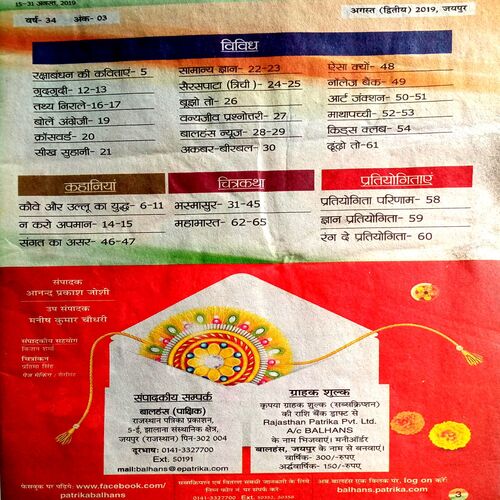 15-31 अगस्त, 2019
वर्ष- 34 अंक- 03
अगस्त (द्वितीय) 2019, जयपुर
विविध
रक्षाबंधन की कविताएं- 5
गुदगुदी- 12-13
तथ्य निराले-16-17
बोलें अंग्रेजी- 19
क्रॉसवर्ड- 20
सीख सुहानी- 21
सामान्य ज्ञान- 22-23
सैरसपाटा (त्रिची )- 24-25
बूझो तो- 26
वन्यजीव प्रश्नोत्तरी- 27
बालहंस न्यूज- 28-29
अकबर-बीरबल- 30
ऐसा क्यों- 48
नॉलेज बैंक- 49
आर्ट जंक्शन- 50-51
माथापच्ची- 52-53
किड्स क्लब- 54
ढूंढ़ो तो-61
कहानियां
कौवे और उल्लू का युद्ध- 6-11
न करो अपमान- 14-15
संगत का असर- 46-47
चित्रकथा
भस्मासुर- 31-45
महाभारत- 62-65
प्रतियोगिताएं
प्रतियोगिता परिणाम- 58
ज्ञान प्रतियोगिता- 59
रंग दे प्रतियोगिता- 60
संपादक
आनन्द प्रकाश जोशी
उप संपादक
मनीष कुमार चौधरी
संपादकीय सहयोग
किशन शर्मा
चित्रांकन
प्रतिमा सिंह
पेज मेकिंग :
संपादकीय सम्पर्क
बालहंस (पाक्षिक)
राजस्थान पत्रिका प्रकाशन,
5-ई, झालाना संस्थानिक क्षेत्र,
जयपुर (राजस्थान) पिन-302 004
दूरभाष: 0141-3327700
Ext. 50191
mail:balhans@epatrika.com
ग्राहक शुल्क
कृपया ग्राहक शुल्क (सब्सक्रिप्शन)
की राशि बैंक ड्राफ्ट से
Rajasthan Patrika Pvt. Ltd.
A/c BALHANS
के नाम भिजवाएं। मनीऑर्डर
बालहंस, जयपुर के नाम से बनवाएं।
वार्षिक- 300/-रुपए
अर्द्धवार्षिक- 150/-रुपए
फेसबुक पर पढ़िए- www.facebook.com/
patrikabalhans
सब्सक्रिप्शन एवं वितरण संबंधी जानकारी के लिये
निम्न फोन नं पर संपर्क करें-
0141-3327700 Ext. 50352, 50358
अब बालहंस एक क्लिक पर, log on करें:
balhans.patrika.com/
3